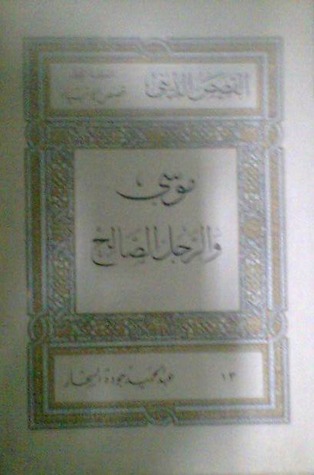 القصص الديني
قصص الأنبياء
موسى
والرجل الصالح
١٣
عبد الحميد جودة السحار